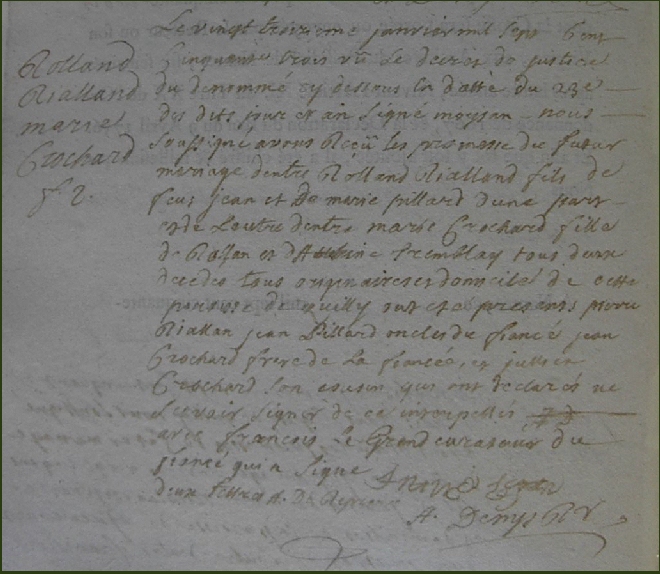 Le vingt troizieme janvier mil sept Cent
Cinquante trois vû Le decret de justice
du denommé cy dessous en datte du 23e
des dits jour et an Signé moysan nous
Soussigné avons Reçu les promesse du futur
mariage dentre Rolland Rialland fils de
feus jean et De marie pillard dune part
et de Loutre dentre marie Crochard fille
de Rollan et Tremblay tous deux
decedes tous originaires et domiciliés de cette
paroisse de quilly ont eté presents pierre
Riallan jean Pillard oncles du fiancé jean
Crochard frere de La fiancée, et jullien
Crochard Son cousin qui ont declarés ne
Scavoir Signer de ce interpellés
avec francois Le Grand curateur du
fiancé qui a Signe
deux
A. Denys Rr
Rolland
Rialland
marie
Crochard
f. 2.